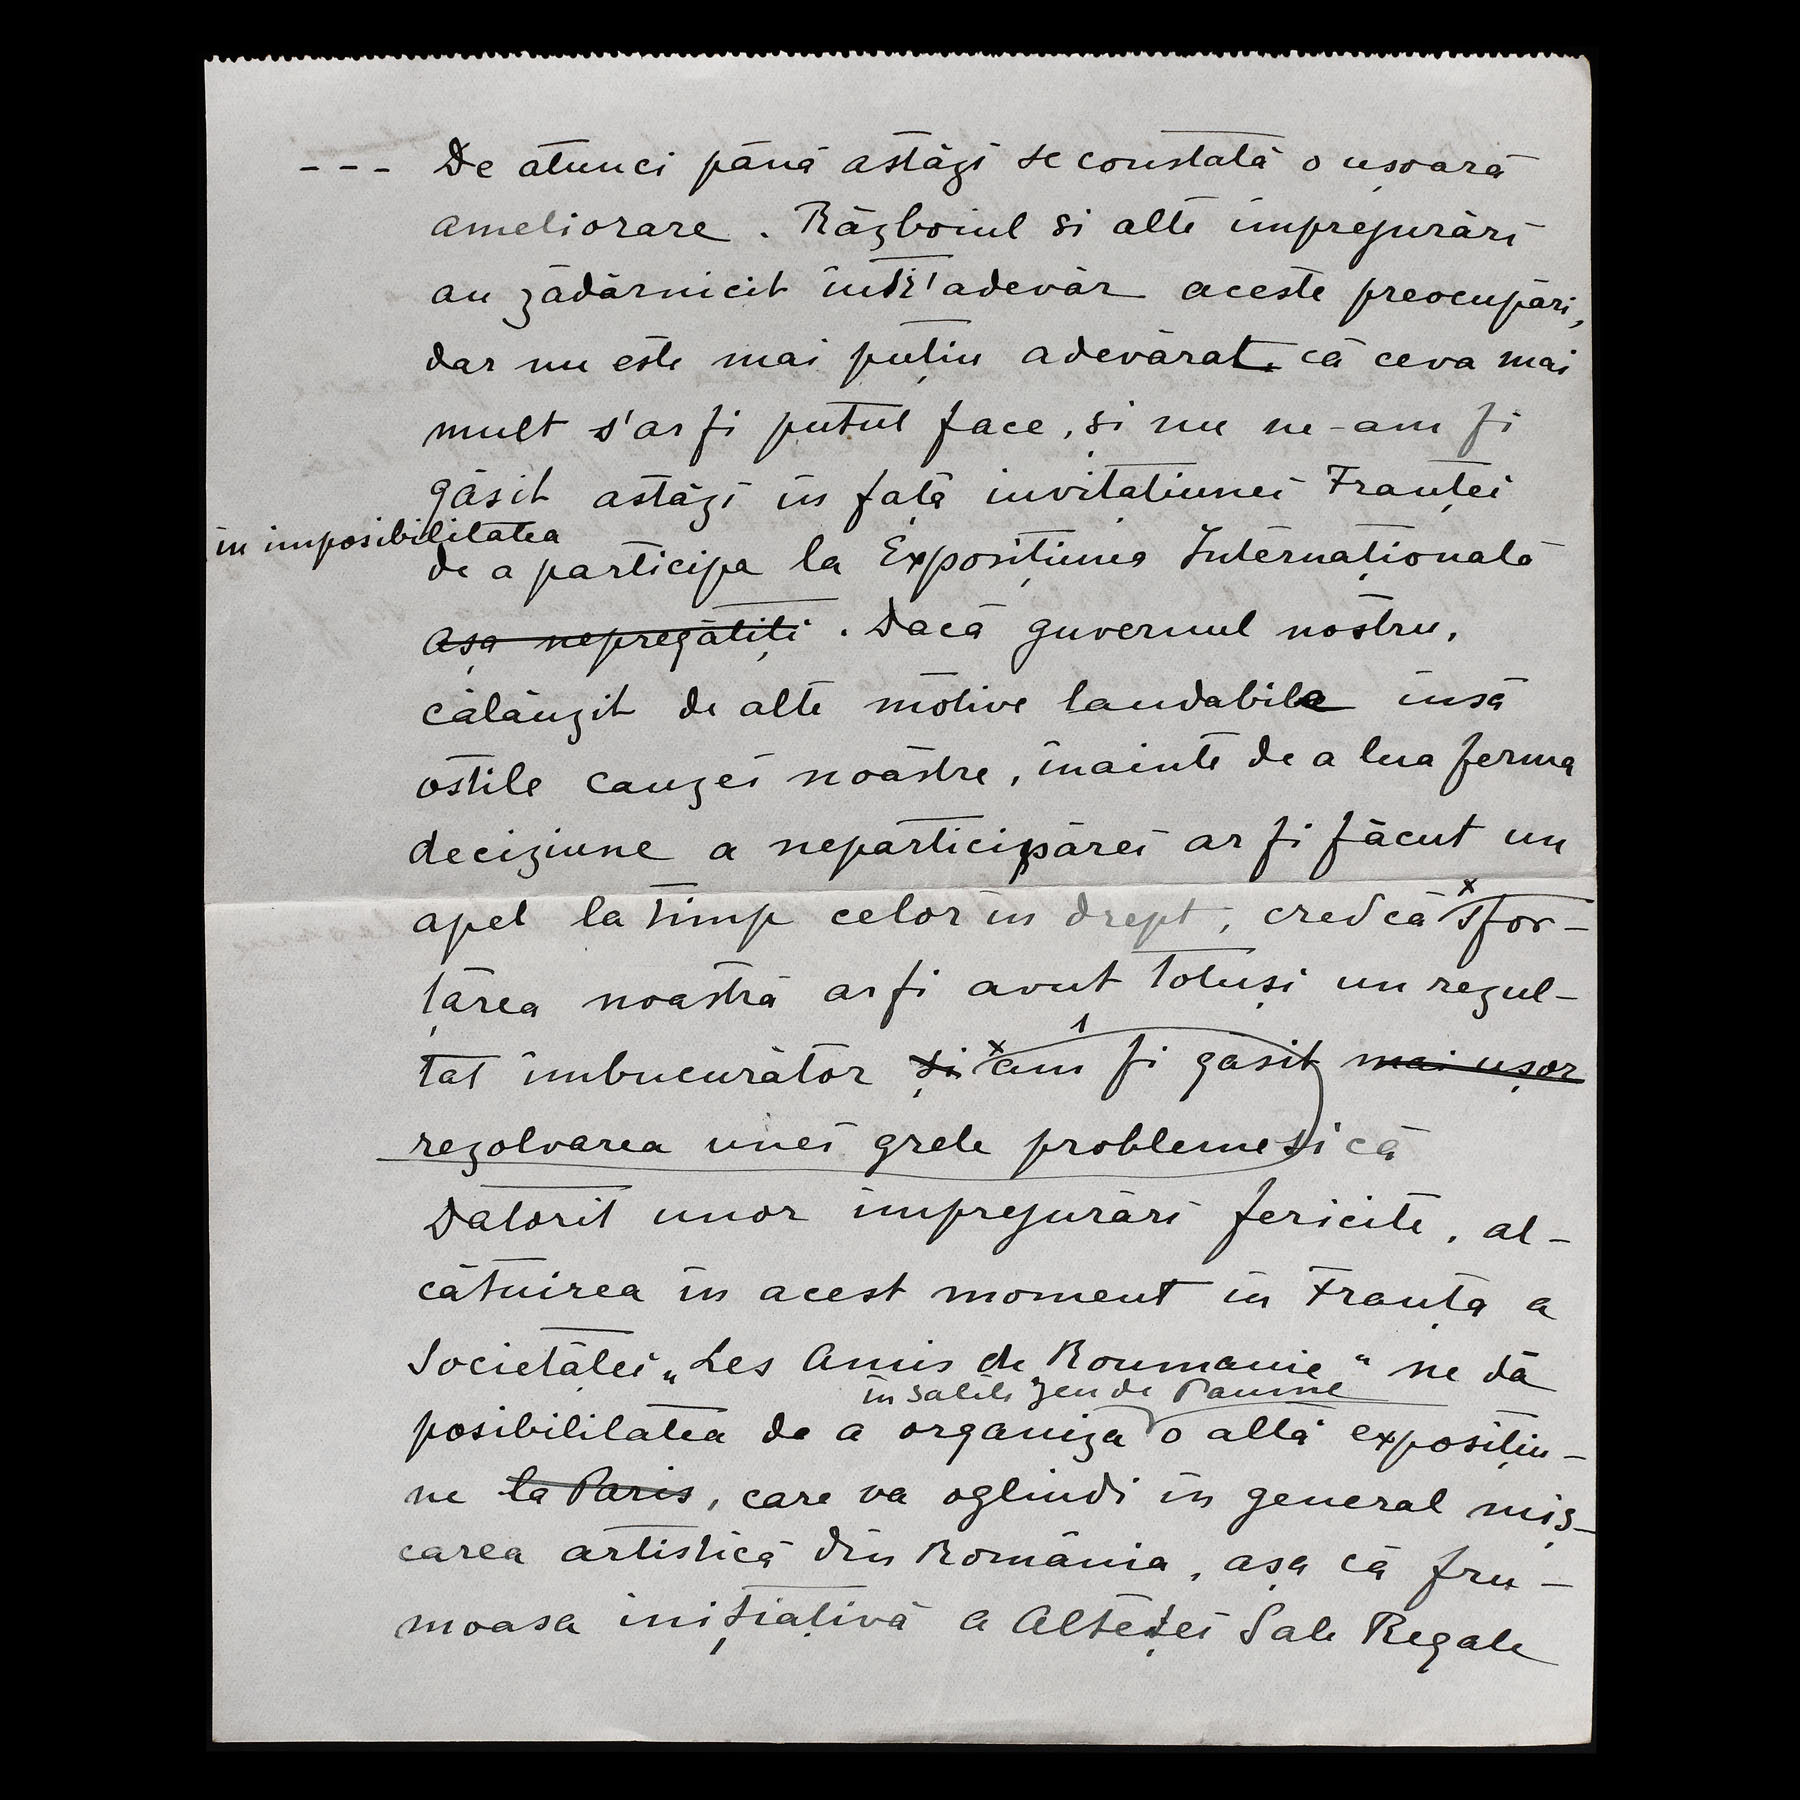 --- De atunci până astăzi se constată o ușoară
ameliorare. Războiul si alte împrejurări
au zădărnicit într'adevăr aceste preocupări,
dar nu este mai puțin adevărat că ceva mai
mult s'ar fi putut face, și nu ne-am fi
găsit astăzi în fața invitațiunei Franței
în imposibilitatea
de a participa la Expozițiunea Internațională
așa nepregătiți. Dacă guvernul nostru,
călăuzit de alte motive laudabile însă
ostile cauzei noastre, înainte de a lua ferma
deciziune a neparticipărei ar fi făcut un
apel la timp celor în drept, cred că x sfor-
țarea noastră ar fi avut totuși un rezul-
tat îmbucurător și x am fi găsit mai ușor
rezolvarea unei grele probleme și că
Datorit unor împrejurări fericite, al-
cătuirea în acest moment în Franța a
Societăței „Les Amis de Roumanie" ne dă
în salile Jeu de Paume
posibilitatea de a organiza o altă expozițiu-
ne la Paris, care va oglindi în general miș-
carea artistică din România, așa că fru-
moasa inițiativă a Alteței Sale Regale